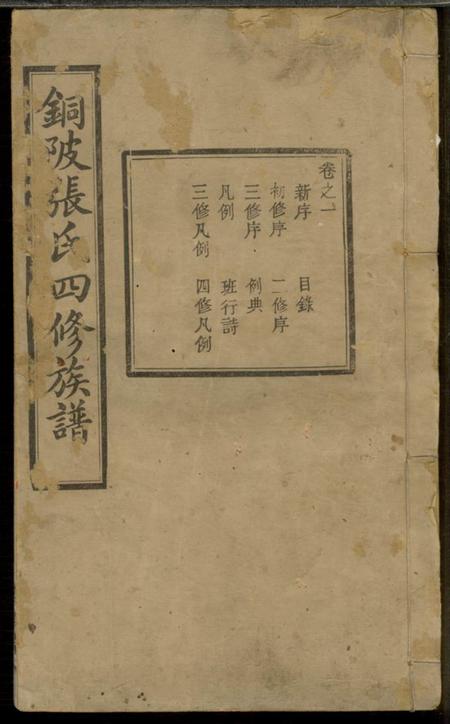 銅陂張氏四修族譜
卷之一
新序　目錄
初修序　二修序
三修序　例典
凡例　班行詩
三修凡例　四修凡例